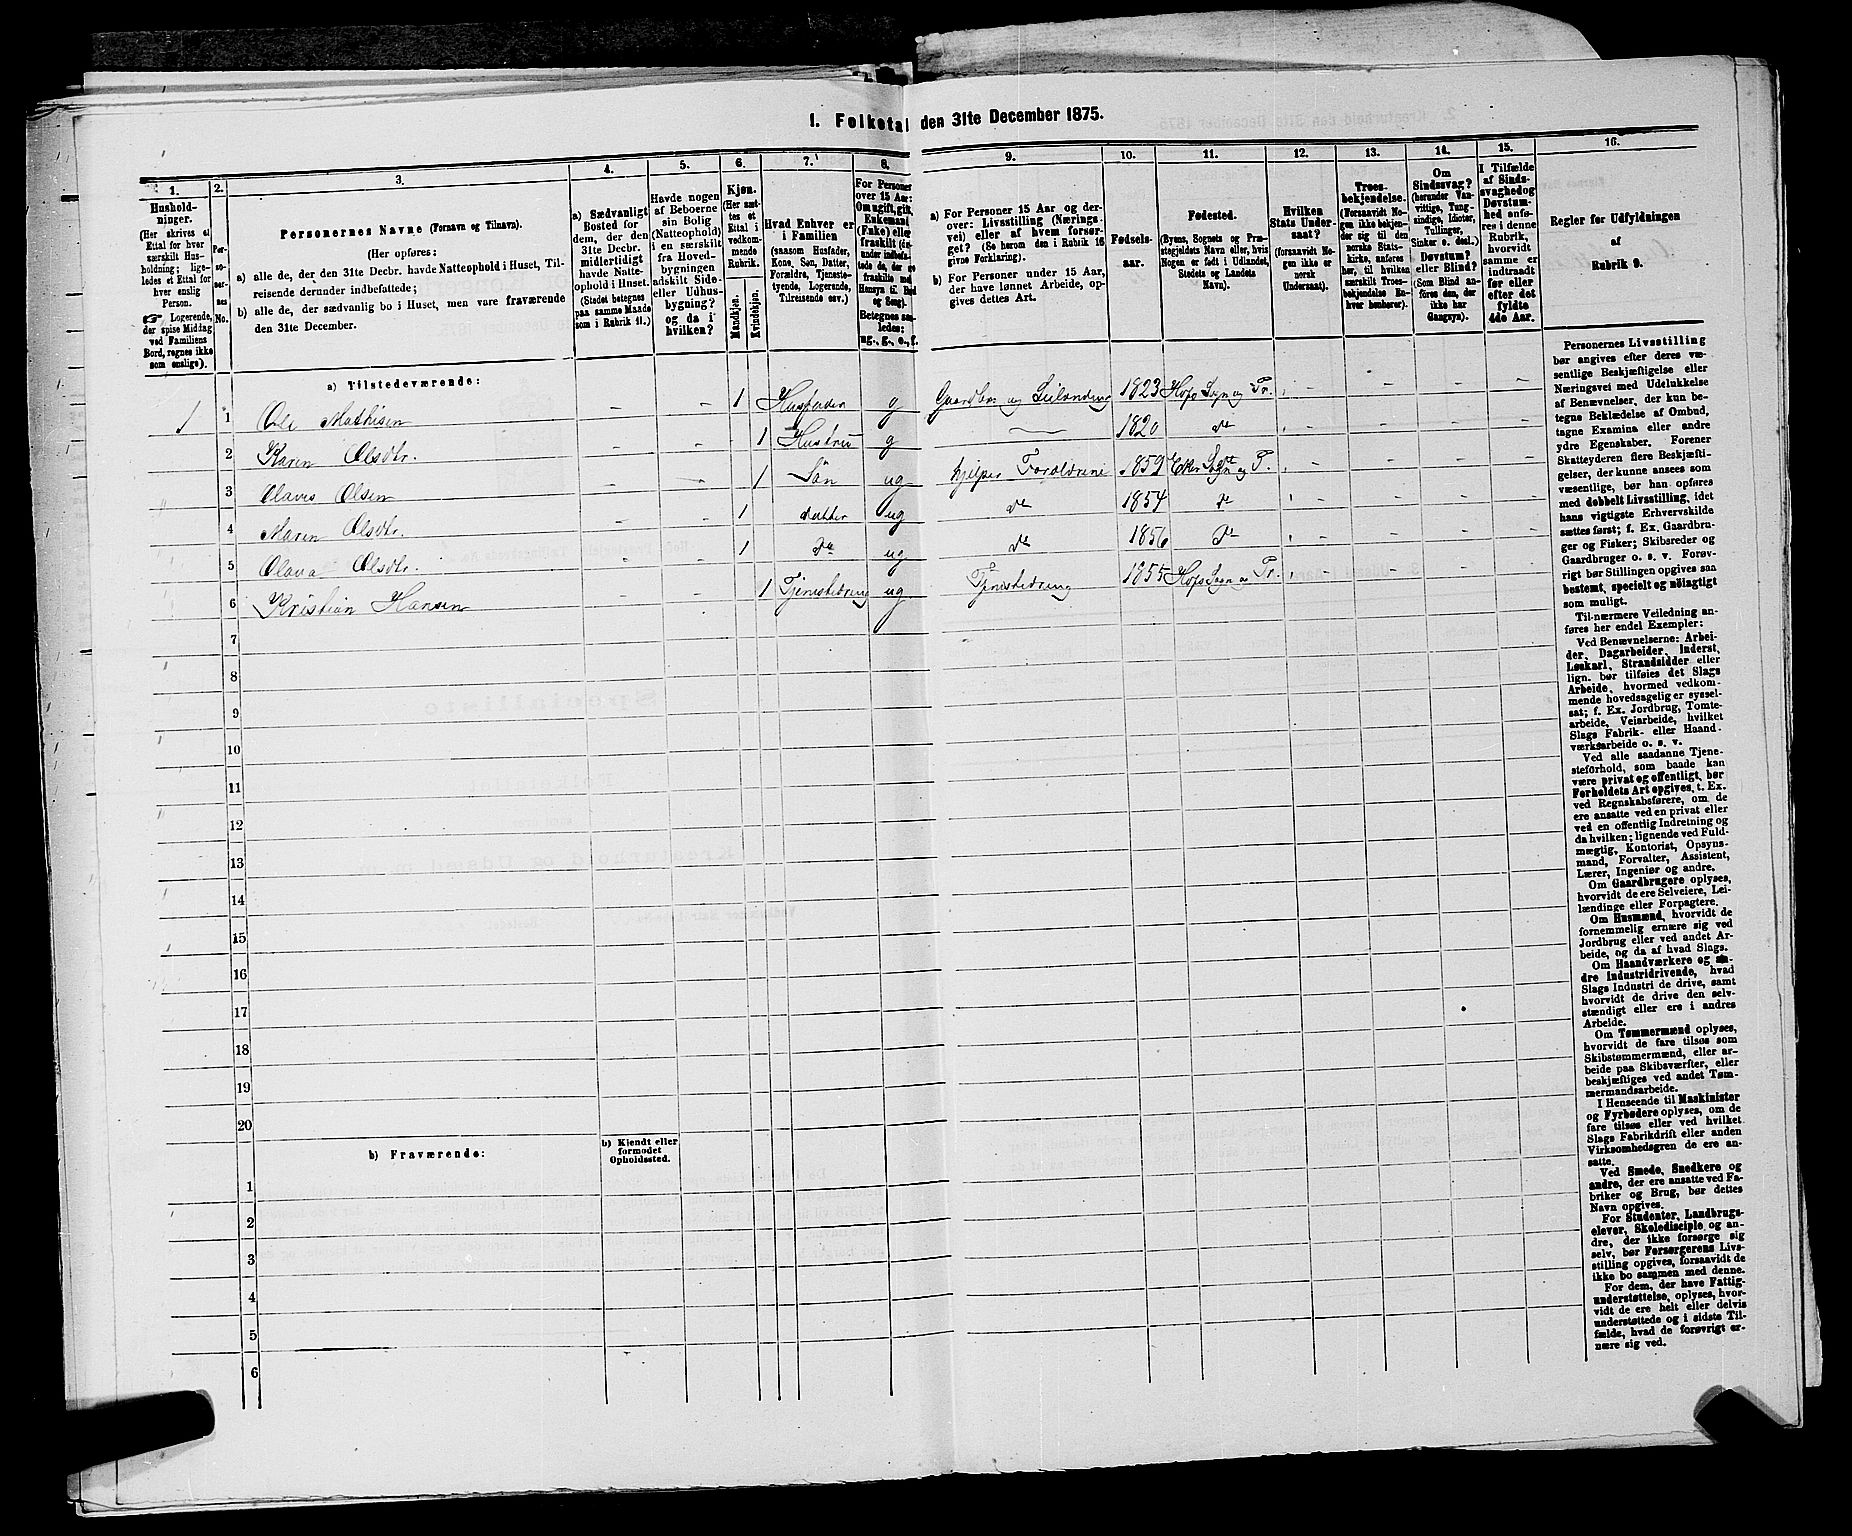 1. Folketal den 31te December 1875.
1. 2. 3. 4. 5. 6. 7. 8. 9. 10. 11. 12. 13. 14. 15. 16.
Hushold-
ninger.
(Her skrives et
Ettal for hver
særskilt Hus-
holdning; lige-
ledes et Ettal for
hver enslig
Person.
☞ Logerende,
der spise Middag
ved Familiens
Bord, regnes ikke
som enslige).
Per-
so-
ner-
nes
No.
Personernes Navne (Fornavn og Tilnavn).
(Her opføres:
a) alle de, der den 31te Decbr. havde Natteophold i Huset, Til-
reisende derunder indbefattede;
b) alle de, der sædvanlig bo i Huset, men vare fraværende
den 31te December.
a) Sædvanligt
Bosted for
dem, der den
31te Decbr.
midlertidigt
havde Natte-
ophold i Huset.
(Stedet betegnes
paa samme Maade
som i Rubrik 11.)
Havde nogen
af Beboerne
sin Bolig
(Natteophold)
i en særskilt
fra Hoved-
bygningen
adskilt Side-
eller Udhus-
bygning?
og da i
hvilken?
Kjøn.
(Her sæt-
tes et
Ettal i
vedkom-
mende
Rubrik.
Mandkjøn.
Kvindekjøn.
Hvad Enhver er
i Familien
(saasom Husfader,
Kone, Søn, Datter,
Forældre, Tjeneste-
tyende, Logerende,
Tilreisende osv.)
For Personer
over 15 Aar:
Om ugift, gift,
Enkemand
(Enke) eller
fraskilt
Betegnes saa-
ledes:
ug., g., e., f.
a) For Personer 15 Aar og der-
over: Livsstilling (Nærings-
vei) eller af hvem forsør-
get? (Se herom den i Rubrik 16
givne Forklaring).
b) For Personer under 15 Aar,
der have lønnet Arbeide, op-
gives dettes Art.
Fødsels-
aar.
Fødested.
(Byens, Sognets og Præ-
stegjeldets Navn eller, hvis
Nogen er født i Udlandet,
Stedets og Landets
Navn).
Hvilken
Stats Under-
saat?
(forsaavidt No-
gen ikke er
norsk
Undersaat).
Troes-
bekjendelse.
(Forsaavidt No-
gen ikke bekjen-
der sig til den
norske Stats-
kirke, anfø-
res her, til hvilken
særskilt Troes-
bekjendelse En-
hver henhører).
Om
Sindssvag?
(herunder Van-
vittige, Tung-
sindige, Idioter,
Tullinger,
Sinker o. desl.)
Døvstum?
eller Blind?
(Som Blind an-
føres den, der
ikke har
Gangsyn).
I Tilfælde
af Sinds-
svaghed og
Døvstum-
hed anfø-
res i denne
Rubrik,
hvorvidt
samme er
indtraadt
før eller
efter det
fyldte
4de Aar.
Regler for Udfyldningen
af
Rubrik 9.
a) Tilstedeværende:
1 1 Ole Mathisen - - 1 Husfader g Gaardbr. og Leilænding 1823 Hofs Sogn og Pr. - - - -
2 Karen Olsdtr. - - 1 Hustru g — 1820 do - - - -
3 Olavis Olsen - - 1 Søn ug hjelper Forældrene 1859 Eker Sogn og P. - - - -
4 Maren Olsdtr. - - 1 datter ug do 1854 do - - - -
5 Olava Olsdtr. - - 1 do ug do 1856 do - - - -
6 Kristian Hansen - - 1 Tjenestedreng ug Tjenestedreng 1855 Hofs Sogn og Pr. - - - -
7
8
9
10
11
12
13
14
15
16
17
18
19
20
b) Fraværende:
b) Kjendt eller
formodet
Opholdssted.
1
2
3
4
5
6
Personernes Livsstilling
bør angives efter deres væ-
sentlige Beskjæftigelse eller
Næringsvei med Udelukkelse
af Benævnelser, der kun be-
tegne Beklædelse af Ombud,
tagne Examina eller andre
ydre Egenskaber. Forener
Skatteyderen flere Beskjæfti-
gelser, der kunne ansees som
væsentlige, bør han opføres
med dobbelt Livsstilling, idet
hans vigtigste Erhvervskilde
sættes først; f. Ex. Gaardbru-
ger og Fisker; Skibsreder og
Gaardbruger o. s. v. Forøv-
rigt bør Stillingen opgives saa
bestemt, specielt og nøiagtigt
som muligt.
Til nærmere Veiledning an-
føres her endel Exempler:
Ved Benævnelserne: Arbei-
der, Dagarbeider, Inderst,
Løskarl, Strandsidder eller
lign. bør tilføies det Slags
Arbeide, hvormed vedkom-
mende hovedsagelig er syssel-
sat; f. Ex. Jordbrug, Tomte-
arbeide, Veiarbeide, hvilket
Slags Fabrik- eller Haand-
værksarbeide o. s. v.
Ved alle saadanne Tjene-
steforhold, som baade kan
være privat og offentligt, bør
Forholdets Art opgives, t. Ex.
ved Regnskabsførere, om de
ere ansatte ved en privat eller
ved en offentlig Indretning og
da hvilken; lignende ved Fuld-
mægtig, Kontorist, Opsyns-
mand, Forvalter, Assistent,
Lærer, Ingeniør og andre.
Om Gaardbrugere oplyses,
hvorvidt de ere Selveiere, Lei-
lændinge eller Forpagtere.
Om Husmænd, hvorvidt de
fornemmelig ernære sig ved
Jordbrug eller ved andet Ar-
beide, og da af hvad Slags.
Om Haandværkere og an-
dre Industridrivende, hvad
Slags Industri de drive, samt
hvorvidt de drive den selv-
stændigt eller ere i andres
Arbeide.
Om Tømmermænd oplyses,
hvorvidt de fare tilsøs som
Skibstømmermænd, eller ar-
beide paa Skibsværfter, eller
beskjæftiges ved andet Tøm-
mermandsarbeide.
I Henseende til Maskinister
og Fyrbødere oplyses, om de
fare tilsøs eller ved hvilket
Slags Fabrikdrift eller anden
Virksomhedsgren de ere an-
satte.
Ved Smede, Snedkere og
andre, der ere ansatte ved Fa-
briker og Brug, bør dettes
Navn opgives.
For Studenter, Landbrugs-
elever, Skoledisciple og an-
dre, der ikke forsørge sig
selv, bør Forsørgerens Livs-
stilling opgives, forsaavidt de
ikke bo sammen med denne.
For dem, der have Fattig-
understøttelse, oplyses, hvor-
vidt de ere helt eller delvis
understøttede og i sidste Til-
fælde, hvad de forøvrigt er-
nære sig ved.